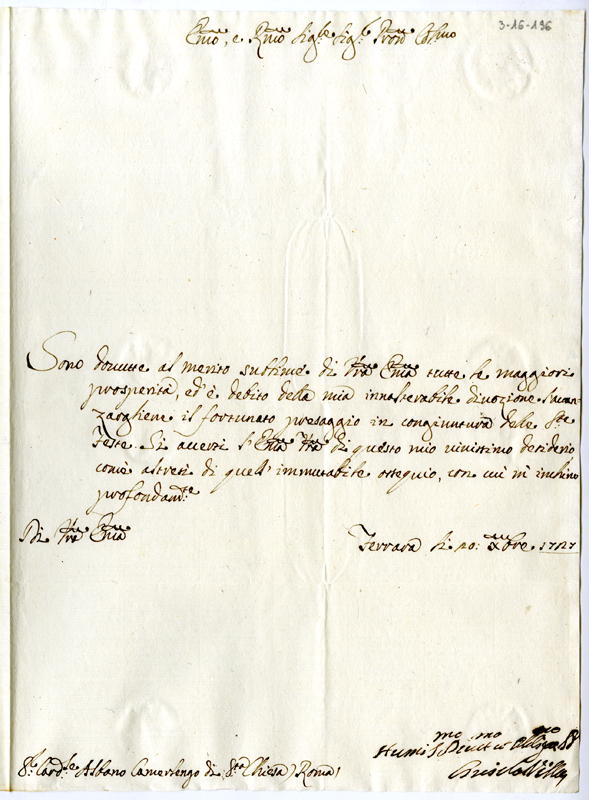 3-16-196
Emo, e Rmo Sigre Sigr Pron Colmo
Sono dovute al merito sublime di Vra Emza tutte le maggiori
prosperità, ed è debito della mia inalterabile divozione l'avan-
zarghene il fortunato presaggio in congiuntura delle Ste
Feste. Si accerti l'Emza Vra di questo mio vivissimo desiderio
come altresì di quell'immutabile ossequio, con cui m'inchino
profondamte
Di Vra Emza
Ferrara li 20: Xbre 1727
Sr Cardle Albano Camerlengo di Sta Chiesa) Roma)
Humilmo Devotmo Obligmo